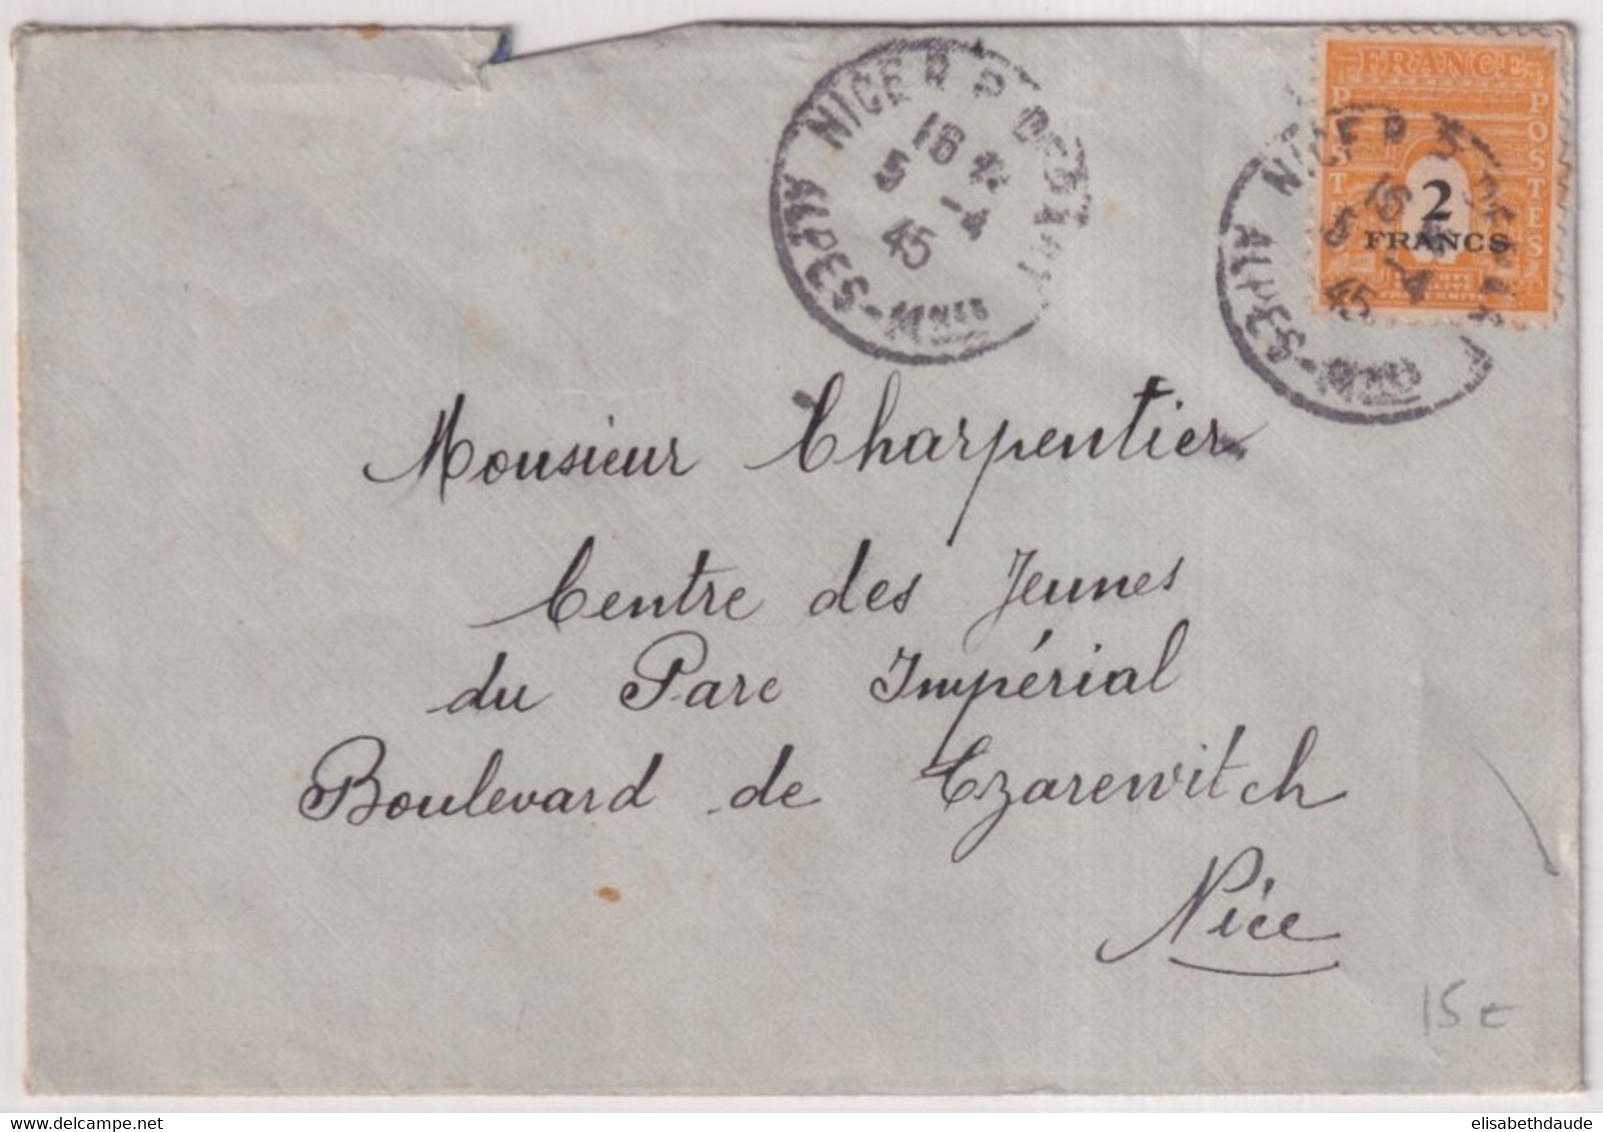 NICE R.P. DEPART
16 H
5 -4
45
ALPES-MMES
FRANCE
POSTES
POSTES
2
FRANCS
NICE R.P. DEPART
16
5 -4
45
ALPES-MMES
Monsieur Charpentier
Centre des Jeunes
du Parc Impérial
Boulevard de Czarewitch
Nice
15 €
delcampe.net
elisabethdaude